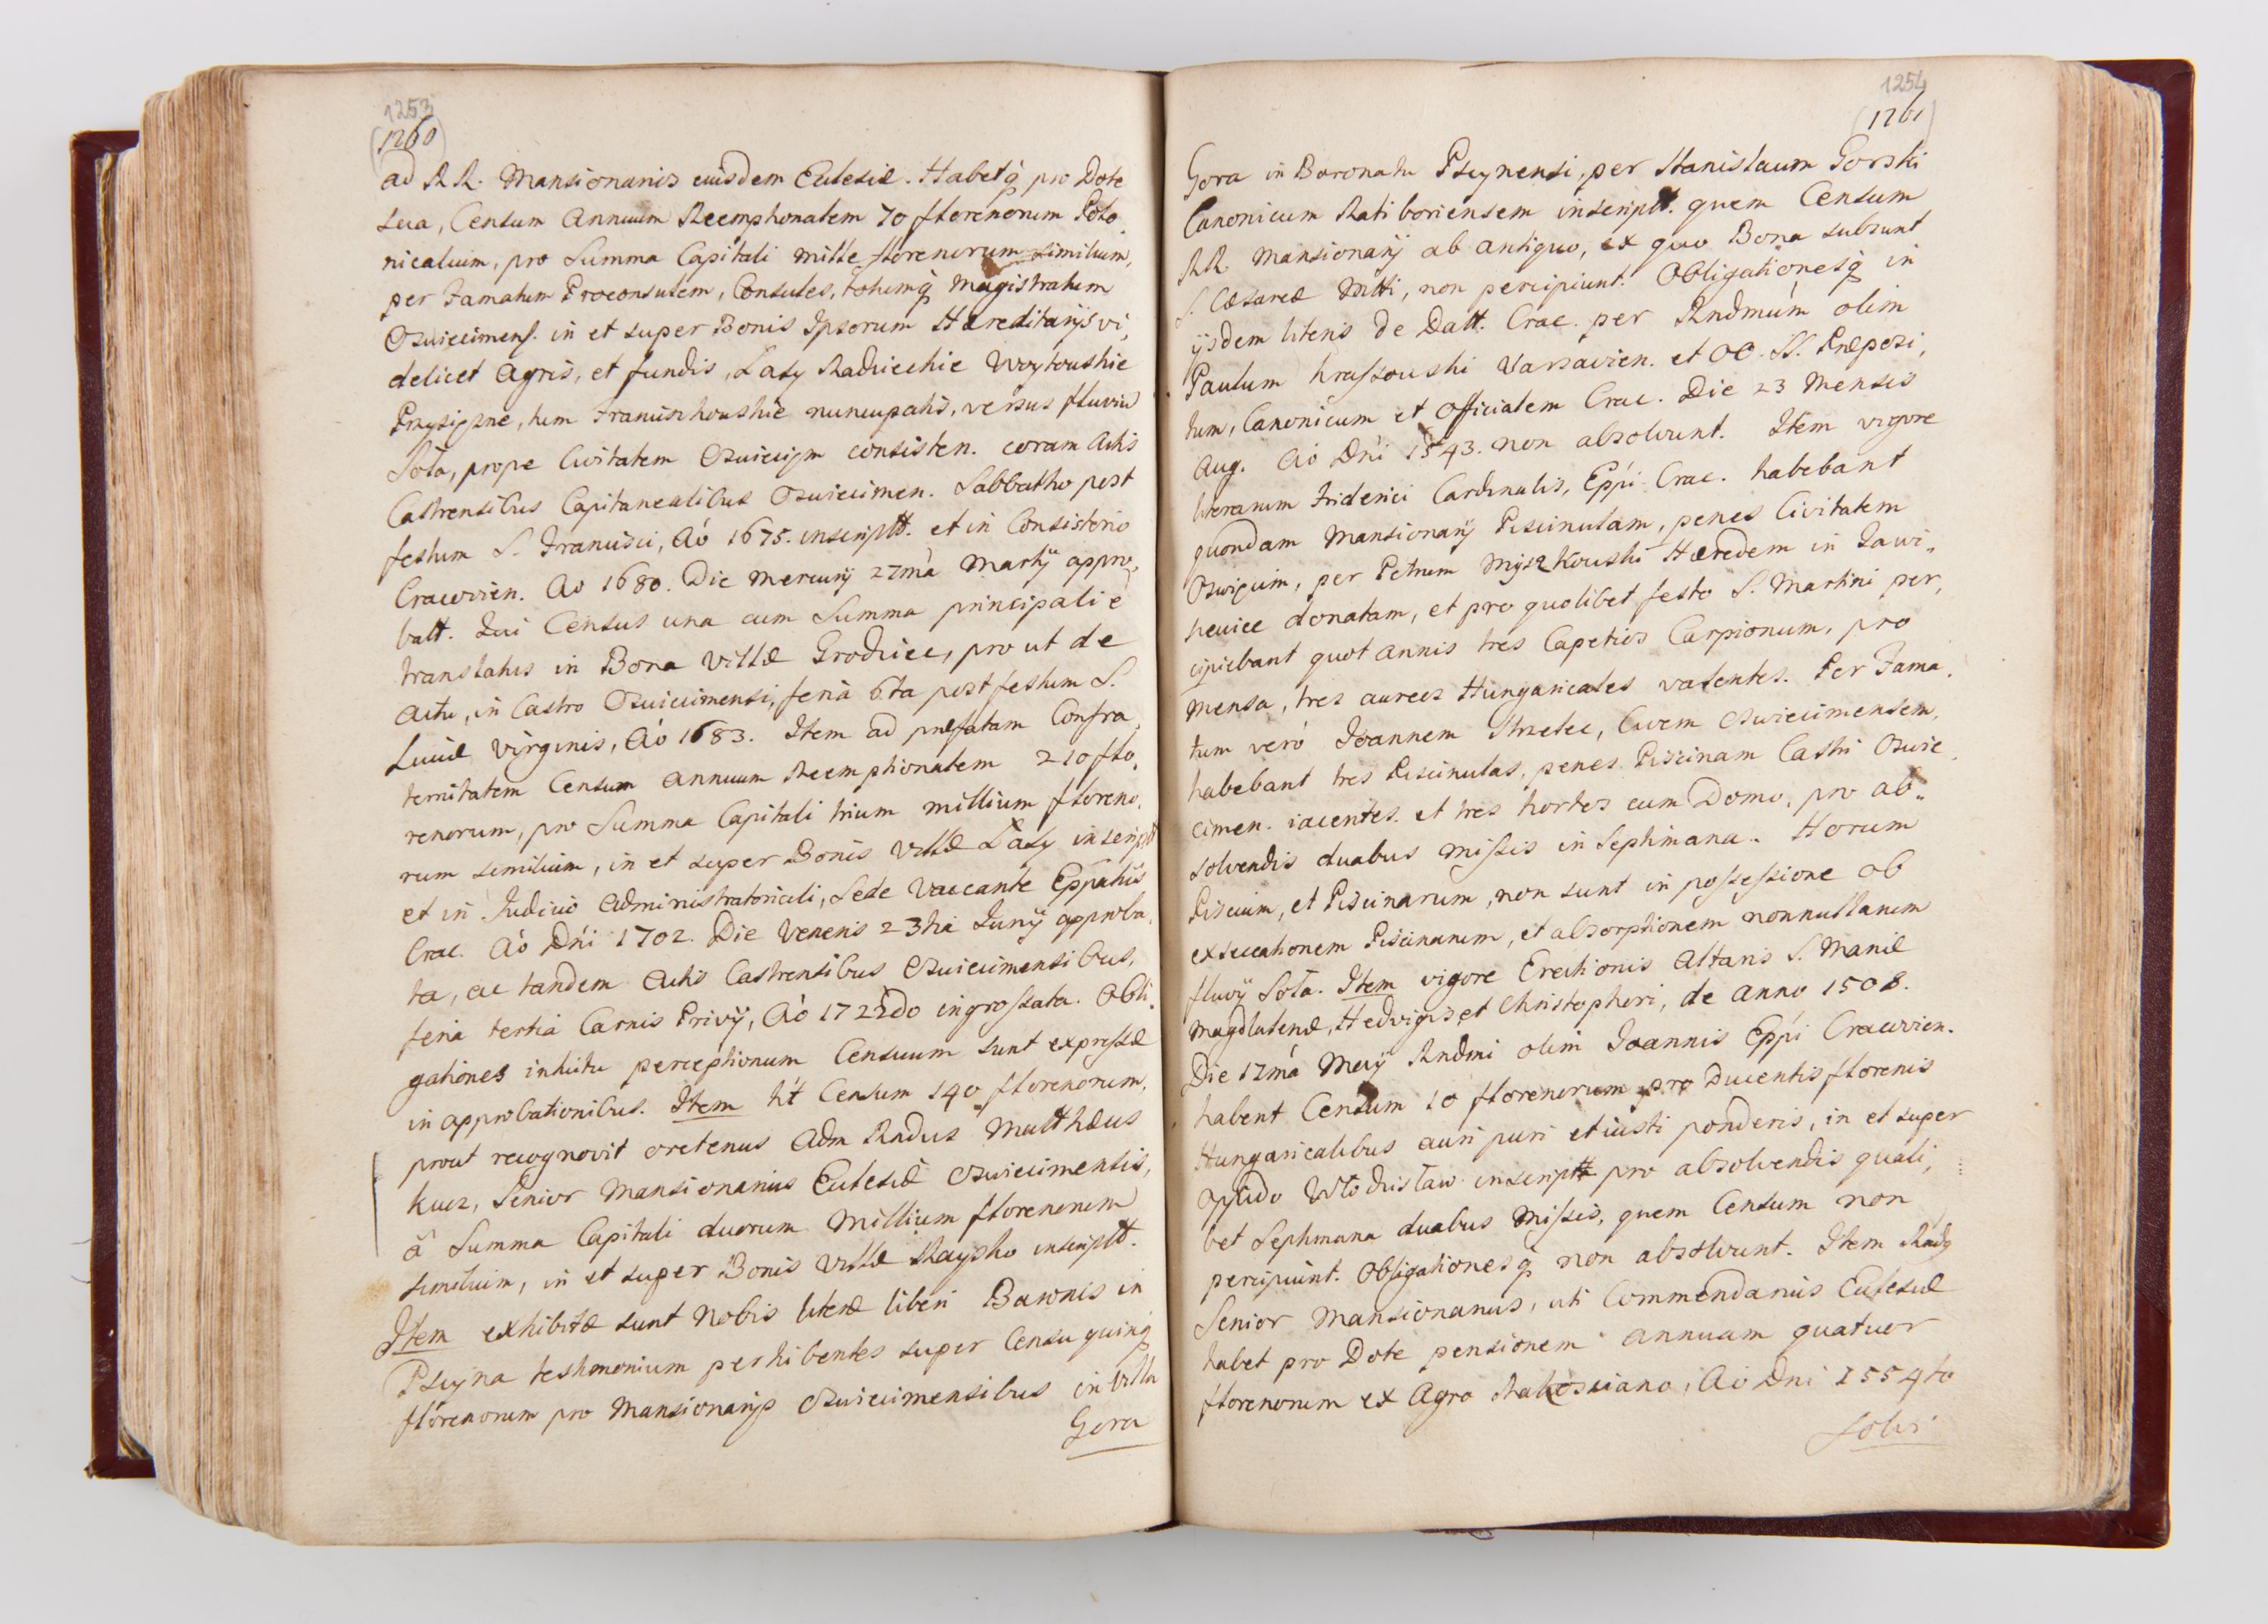 1253
(1260)
ad RR. Mansionarios eiusdem Ecclesiæ. Habetq́ pro Dote
sua, Censum annuum Reemptionalem 70 florenorum Polo,
nicalium, pro Summa Capitali mille florenorum similium,
per Famatum Proconsulem, Consules, totumq́ Magistratum
Osviecimens. in et super Bonis Ipsorum Hæreditarijs vi,
delicet Agris, et fundis, Lasy Radvieckie Woytowskie
Przysiezne, tum Franciszkowskie nuncupatis, versus fluviu
Soła, prope Civitatem Osviecijm consisten. coram Actis
Castrensibus Capitanealibus Osviecimen. Sabbatho post
festum S. Francisci, Aó 1675. inscriptt. et in Consistorio
Cracovien. Aó 1680. Die Mercurij 27má Martij appro,
batt. Qui Census una cum Summa principali è
translatus in Bona Villæ Grodziec, pro ut de
actu, in Castro Osviecimensi, feria 6ta post festum S.
Luciæ Virginis, Aó 1683. Item ad præfatam Confra,
ternitatem Censum annuum Reemptionalem 210 flo,
renorum, pro Summa Capitali trium millium floreno,
rum similium, in et super Bonis Villæ Lasy inscriptt
et in Iudicio Administratoriali, Sede Vaccante Eppátûs
Crac. Aó Dńi 1702. Die Veneris 23tia Iunij approba,
ta, ac tandem Actis Castrensibus Osviecimensibus,
feria tertia Carnis Privij, Aó 1722do ingrossata. Obli,
gationes intuitu perceptionum Censuum sunt expressæ
in approbationibus. Item ht́ Censum 140 florenorum,
prout recognovit oretenus Adm Rndus Matthæus
Kucz, Senior Mansionarius Ecclesiæ Osviecimensis,
â Summa Capitali duorum Millium florenorum
similium, in et super Bonis Villæ Raysko inscriptt.
Item exhibitæ sunt Nobis literæ liberi Baronis in
Pscyna testimonium perhibentes super Censu quinq́
florenorum pro Mansionarijs Osviecimensibus in Villa
Gora
1254
(1261)
Gora in Baronatu Pscynensi, per Stanislaum Gorski
Canonicum Ratiboriensem inscriptt. quem Censum
RR. Mansionarij ab antiquo, ex quo Bona subsunt
S. Cæsareæ Mtti, non percipiunt. Obligationesq́ in
ijsdem literis de Datt. Crac. per Rndmum olim
Paulum Krassowski Varsavien. et OO. SS. Præposi,
tum, Canonicum et Officialem Crac. Die 23 Mensis
Aug. Aó Dńi 1543. non absolvunt. Item vigore
literarum Friderici Cardinalis, Eppi Crac. habebant
quondam Mansionarij Piscinulam, penes Civitatem
Oswiecim, per Petrum Myszkowski Hæredem in Zawi,,
peuice donatam, et pro quolibet festo S. Martini per,
cipiebant quot annis tres Capetios Carpionum, pro
mensa, tres aureos Hungaricales valentes. Per Fama,
tum veró Ioannem Strzelec, Civem Osviecimensem,
habebant tres Piscinulas, penes Piscinam Castri Osvie,
cimen. iacentes. et tres hortos cum Domo, pro ab,,
solvendis duabus missis in Septimana. Horum
Piscium, et Piscinarum, non sunt in possessione ob
exsiccationem Piscinarum, et absorptionem nonnullarum
fluvij Soła. Item vigore Erectionis Altaris S. Mariæ
Magdalenæ, Hedvigis, et Christophori, de anno 1508.
Die 12má Maij Rndmi olim Ioannis Eppi Cracovien.
habent Censum 10 florenorum pro Ducentis florenis
Hungaricalibus auri puri et iusti ponderis, in et super
Oppido Włodzisław inscriptt pro absolvendis quali,
bet Septimana duabus Missis, quem Censum non
percipiunt. Obligationesq́ non absolvunt. Item Rndg
Senior Mansionarius, uti Commendarius Ecclesiæ
habet pro Dote pensionem annuam quatuor
florenorum ex Agro, Aó Dńi 1554to
solvi